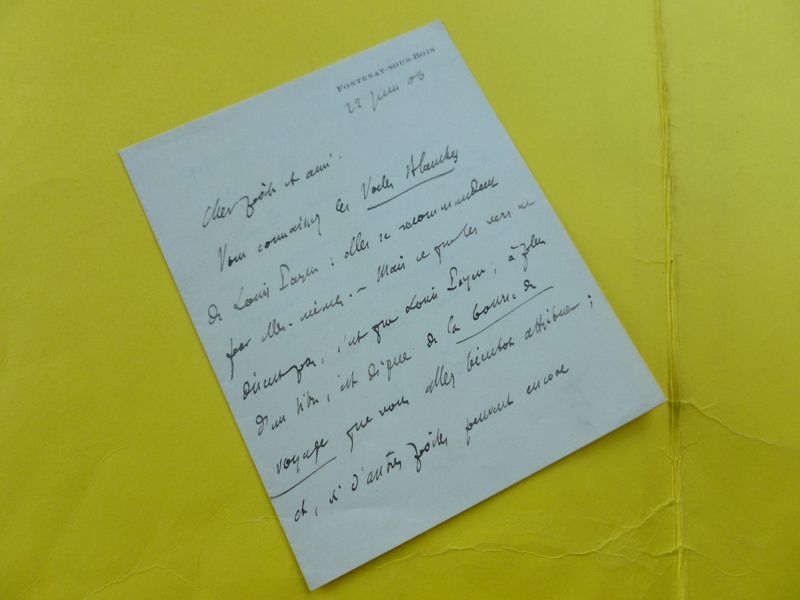 FONTENAY-SOUS-BOIS
22 juin 05
Cher poète et ami.
Vous connaissez les Voiles blanches
de Louis Payen : elles se recommandent
par elles-mêmes. — Mais ce que les vers ne
disent pas, c'est que Louis Payen, à plus
d'un titre, est digne de la bourse de
voyage que vous allez bientôt attribuer ;
et, si d'autres poètes peuvent encore